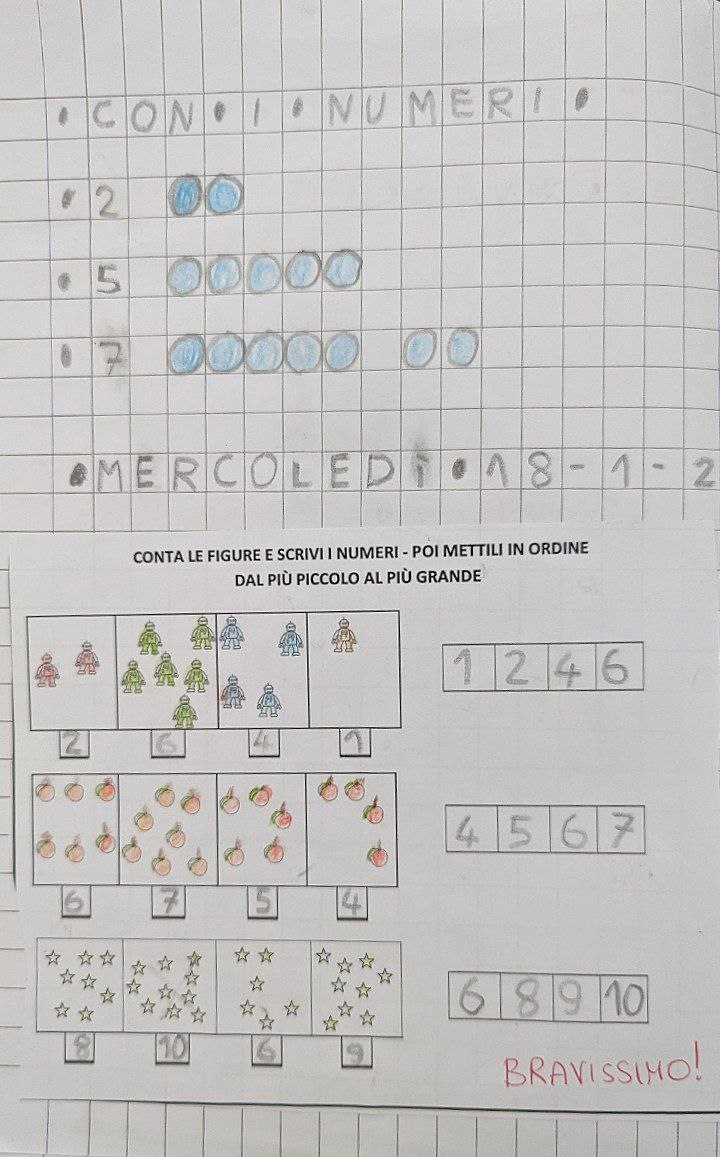 • CON • I • NUMERI •
• 2
• 5
• 7
• MERCOLEDÌ • 18-1-2
CONTA LE FIGURE E SCRIVI I NUMERI - POI METTILI IN ORDINE
DAL PIÙ PICCOLO AL PIÙ GRANDE
1 2 4 6
2 6 4 1
4 5 6 7
6 7 5 4
6 8 9 10
8 10 6 9
BRAVISSIMO!